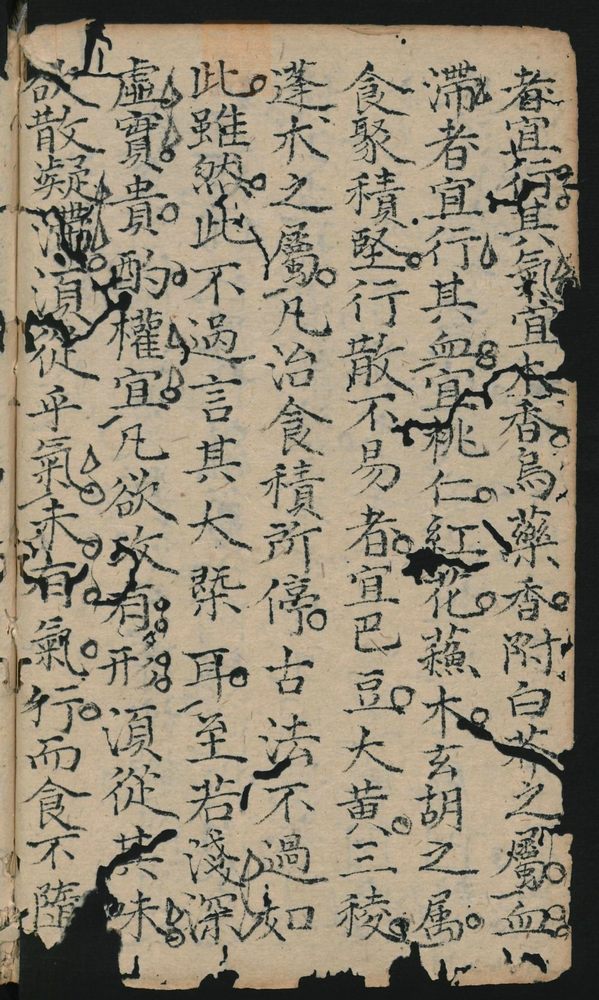 者宜行其氣宜木香烏藥香附白芥之屬血
滯者宜行其血宜桃仁紅花蘓木玄胡之属
食聚積堅行散不易者宜巴豆大黄三稜
蓬朮之屬凡治食積所停古法不過如
此雖然此不過言其大槩耳至若淺深
虛實貴酌權宜凡欲攻有形須從其味
欲散凝滯須從乎氣未有氣行而食不隨